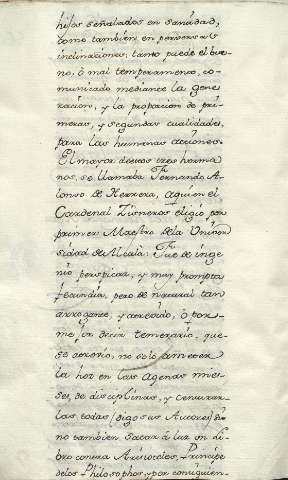 hijos señalados en sanidad,
como tambien en perversas
inclinaciones, tanto puede el bue-
no, ò mal temperamento, co-
municado mediante la gene
racion, y la proporcion de pri-
meras, y segundas cualidades,
para las humanas acciones.
El mayor destos tres herma
nos, se llamaba Fernando A-
lonso de Herrera, aquien el
Cardenal Zisneros eligiò por
primer Maestro dela Univer
sidad de Alcala: Fue de inge-
nio perspicaz, y muy prompta
fecundia, pero de natural tan
arrogante, y atrevido, ò por
me-jor decir temerario, que
se atrevio, no solo à meter
la hoz en las agenas mies-
ses, de disciplinas, y censurar-
las todas (digo sus Autores) si
no tambien, sacar à luz un Li-
bro contra Aristoteles, Principe
delos Philosophos, y por consiguien-